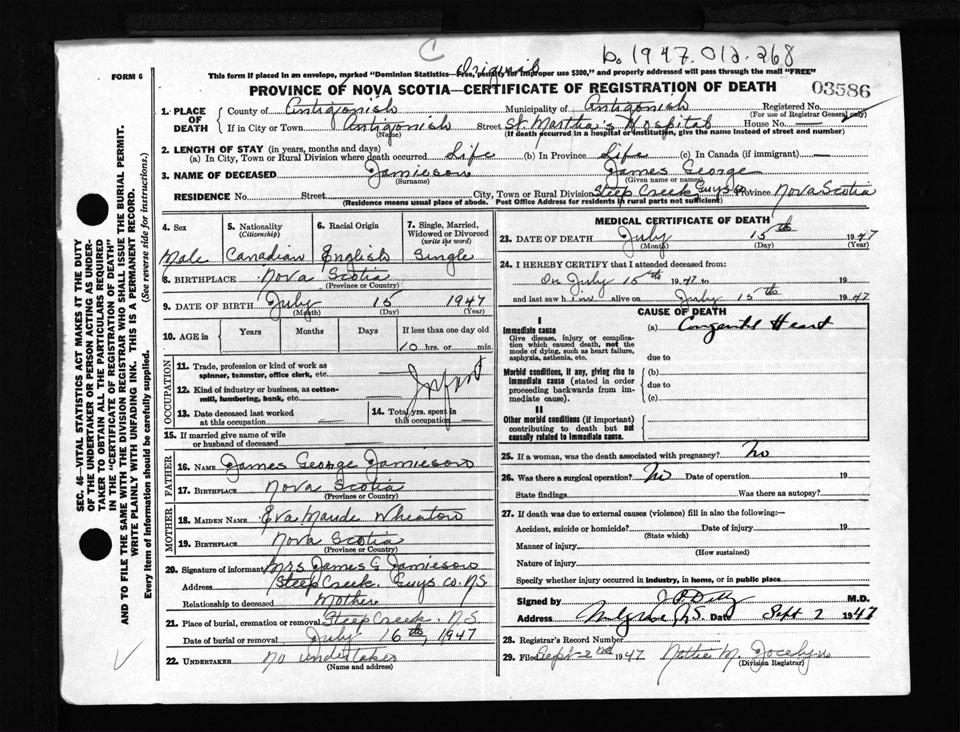 C b. 1947.012.268
Original
FORM 6
This form if placed in an envelope, marked "Dominion Statistics—Free, penalty for improper use $300," and properly addressed will pass through the mail "FREE"
PROVINCE OF NOVA SCOTIA—CERTIFICATE OF REGISTRATION OF DEATH 03586
1. PLACE OF DEATH County of Antigonish Municipality of Antigonish Registered No.
(For use of Registrar General only)
If in City or Town Antigonish Street St. Martha's Hospital House No. —
(Name) (If death occurred in a hospital or institution, give the name instead of street and number)
2. LENGTH OF STAY (in years, months and days)
(a) In City, Town or Rural Division where death occurred Life (b) In Province Life (c) In Canada (if immigrant) —
3. NAME OF DECEASED Jamieson James George
(Surname) (Given name or names)
RESIDENCE No. Street City, Town or Rural Division Steep Creek Guys Co Province Nova Scotia
(Residence means usual place of abode. Post Office Address for residents in rural parts not sufficient)
4. Sex 5. Nationality (Citizenship) 6. Racial Origin 7. Single, Married, Widowed or Divorced (write the word)
Male Canadian English Single
8. BIRTHPLACE Nova Scotia
(Province or Country)
9. DATE OF BIRTH July 15 1947
(Month) (Day) (Year)
10. AGE in Years Months Days If less than one day old
10 hrs. or min.
OCCUPATION
11. Trade, profession or kind of work as spinner, teamster, office clerk, etc. Infant
12. Kind of industry or business, as cotton-mill, lumbering, bank, etc.
13. Date deceased last worked at this occupation 14. Total yrs. spent in this occupation
15. If married give name of wife or husband of deceased
FATHER
16. NAME James George Jamieson
17. BIRTHPLACE Nova Scotia
(Province or Country)
MOTHER
18. MAIDEN NAME Eva Maude Wheaton
19. BIRTHPLACE Nova Scotia
(Province or Country)
20. Signature of informant Mrs James G Jamieson
Address Steep Creek. Guys Co. N.S
Relationship to deceased Mother
21. Place of burial, cremation or removal Steep Creek. N.S.
Date of burial or removal July 16th, 1947
22. UNDERTAKER No undertaker
(Name and address)
MEDICAL CERTIFICATE OF DEATH
23. DATE OF DEATH July 15th 1947
(Month) (Day) (Year)
24. I HEREBY CERTIFY that I attended deceased from:
On July 15th 1947 to 19
and last saw him alive on July 15th 1947
CAUSE OF DEATH
I
Immediate cause (a) Congenital Heart
Give disease, injury or complication which caused death, not the mode of dying, such as heart failure, asphyxia, asthenia, etc.
due to
Morbid conditions, if any, giving rise to immediate cause (stated in order proceeding backwards from immediate cause).
(b)
due to
(c)
II
Other morbid conditions (if important) contributing to death but not causally related to immediate cause.
25. If a woman, was the death associated with pregnancy? No
26. Was there a surgical operation? No Date of operation 19
State findings Was there an autopsy?
27. If death was due to external causes (violence) fill in also the following:—
Accident, suicide or homicide? Date of injury 19
(State which)
Manner of injury
(How sustained)
Nature of injury
Specify whether injury occurred in industry, in home, or in public place
Signed by M.D.
Address Mulgrave N.S. Date Sept 2 1947
28. Registrar's Record Number
29. Filed Sept-2nd 1947 M. Jocelyn
(Division Registrar)
SEC. 46—VITAL STATISTICS ACT MAKES IT THE DUTY
OF THE UNDERTAKER OR PERSON ACTING AS UNDER-
TAKER TO OBTAIN ALL THE PARTICULARS REQUIRED
IN THE "CERTIFICATE OF REGISTRATION OF DEATH"
AND TO FILE THE SAME WITH THE DIVISION REGISTRAR WHO SHALL ISSUE THE BURIAL PERMIT.
WRITE PLAINLY WITH UNFADING INK. THIS IS A PERMANENT RECORD.
Every item of information should be carefully supplied. (See reverse side for instructions.)